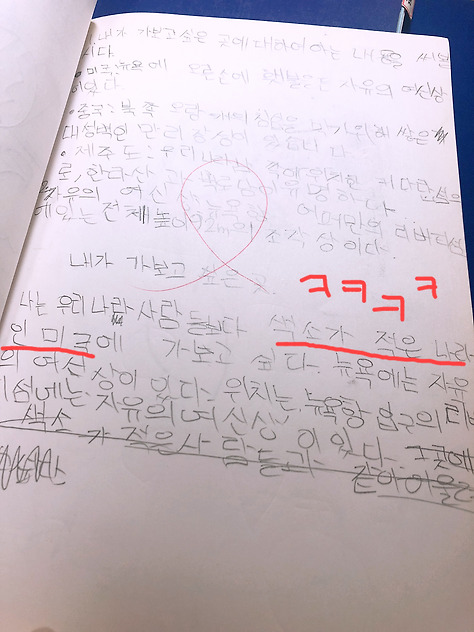 내가 가보고싶은 곳에대하여아는 내용을 써본
시다.
미국:뉴욕에 오른손에 횃불든 자유의 여신상
이있다.
중국:북쪽 유랑 을 기위해 쌓은
대 인 만리장성이 있습니다.
제주도:우리나라 쪽에 위치한 커다란섬으
로,한라산과 이유명하다.
자유의 여신 뉴욕항 리버티섬
에있는전체높이92m의 조각상이다.
내가 가보고 싶은곳
ㅋㅋㅋㅋ
나는 우리나라사람들보다 색소가 적은 나라
인 미국에 가보고 싶다. 뉴욕에는 자유
의 여신상이 있다. 위치는, 뉴욕항 입구의 리버
티섬에는 자유의여신상이 있다. 그곳에
색소가 적은사람들과 같이어울려